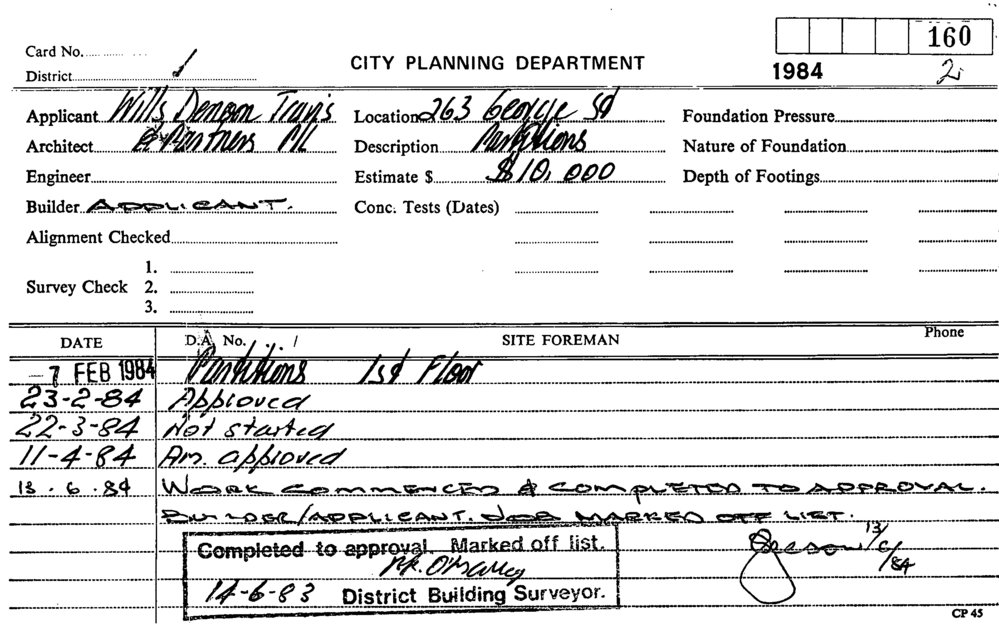 160
Card No.
CITY PLANNING DEPARTMENT
District 1
1984 2
Applicant Wills Denoon Travis Location 263 George St Foundation Pressure
Architect & Partners P/L Description Partitions Nature of Foundation
Engineer Estimate $ $10,000 Depth of Footings
Builder APPLICANT. Conc. Tests (Dates)
Alignment Checked
1.
Survey Check 2.
3.
DATE D.A. No. / SITE FOREMAN Phone
-7 FEB 1984 Partitions 1st Floor
23-2-84 Approved
22-3-84 Not started
11-4-84 Am. approved
13.6.84 WORK COMMENCED & COMPLETED TO APPROVAL.
BUILDER/APPLICANT. JOB MARKED OFF LIST.
Completed to approval. Marked off list.
13/6/84
14-6-83 District Building Surveyor.
CP 45